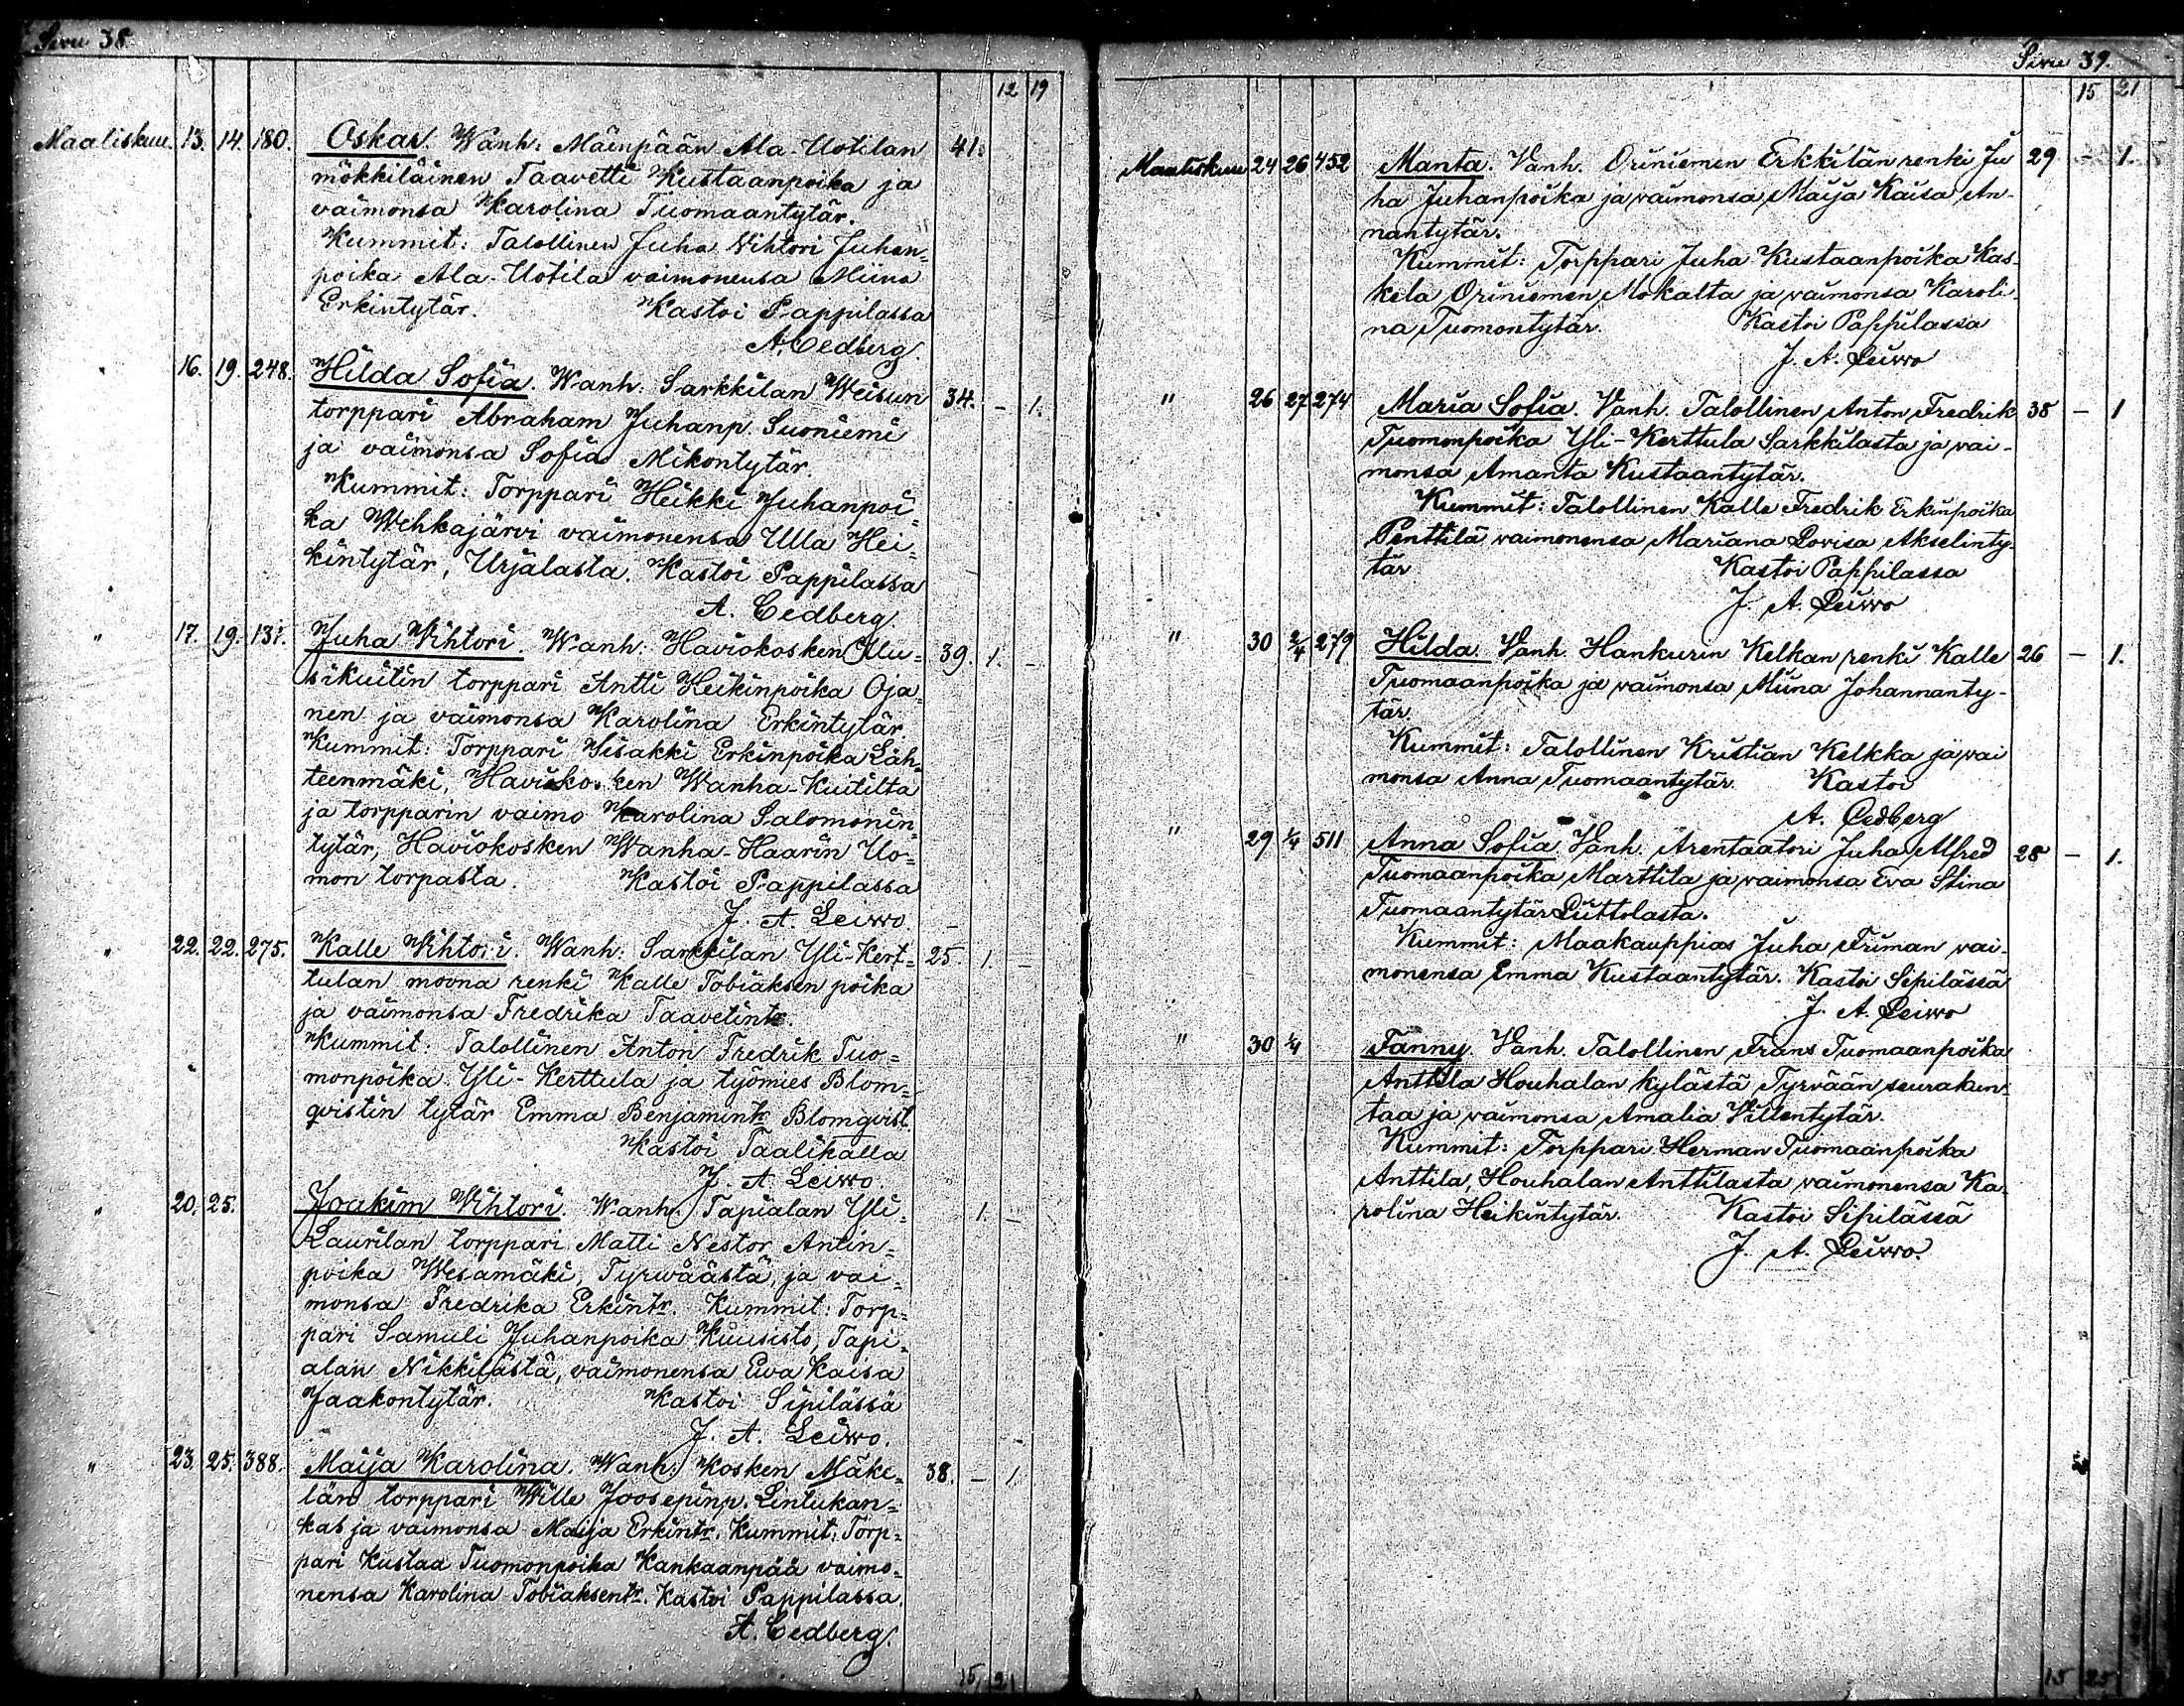 Sivu 38.
12 19
Maaliskuu. 13. 14. 180. Oskar. Wanh: Mäenpään Ala-Uotilan 41.
mökkiläinen Taavetti Kustaanpoika ja
vaimonsa Karolina Tuomaantytär.
Kummit: Talollinen Juha Vihtori Juhan=
poika Ala-Uotila vaimonensa Miina
Erkintytär. Kastoi Pappilassa
A. Cedberg
16. 19. 248. Hilda Sofia. Wanh: Sarkkilan Weisun 34. – 1.
torppari Abraham Juhanp. Suoniemi
ja vaimonsa Sofia Mikontytär.
Kummit: Torppari Heikki Juhanpoi=
ka Wehkajärvi vaimonensa Ulla Hei=
kintytär, Urjalasta. Kastoi Pappilassa
A. Cedberg.
" 17. 19. 131. Juha Vihtori. Wanh: Haviokosken Uu= 39. 1. –
sikuitin torppari Antti Heikinpoika Oja
nen ja vaimonsa Karolina Erkintytär
Kummit: Torppari Iisakki Erkinpoika Läh=
teenmäki, Haviokosken Wanha-Kuitilta
ja torpparin vaimo Karolina Salomonin=
tytär, Haviokosken Wanha-Haarin Uo=
mon torpasta. Kastoi Pappilassa
J. A. Leivvo.
" 22. 22. 275. Kalle Vihtori. Wanh: Sarkkilan Yli-Kert= 25. 1. –
tulan moona renki Kalle Tobiaksen poika
ja vaimonsa Fredrika Taavetintr.
Kummit: Talollinen Anton Fredrik Tuo=
monpoika Yli-Kerttula ja työmies Blom=
qvistin tytär Emma Benjamintr Blomqvist.
Kastoi Taalikalla
J. A. Leivvo.
" 20. 25. Joakim Vihtori. Wanh: Tapialan Yli= 1. –
Laurilan torppari Matti Nestor Antin=
poika Wesamäki, Tyrwäästä, ja vai=
monsa Fredrika Erkintr. Kummit: Torp=
pari Samuli Juhanpoika Kuusisto, Tapi=
alan Nikkilästä, vaimonensa Ewa Kaisa
Jaakontytär. Kastoi Sipilässä
J. A. Leivvo.
" 23. 25. 388. Maija Karolina. Wanh: Kosken Mäke= 38. – 1.
län torppari Wille Joosepinp. Lintukan=
kas ja vaimonsa Maija Erkintr. Kummit: Torp=
pari Kustaa Tuomonpoika Kankaanpää vaimo=
nensa Karolina Tobiaksentr. Kastoi Pappilassa.
A. Cedberg.
15 21
Sivu 39.
15 21
Maaliskuu 24 26 452 Manta. Vanh. Oriniemen Erkkilän renki Ju 29 – 1.
ha Juhanpoika ja vaimonsa Maija Kaisa An-
nantytär.
Kummit: Torppari Juha Kustaanpoika Kas-
kela Oriniemen Mokalta ja vaimonsa Karoli-
na Tuomontytär. Kastoi Pappilassa
J. A. Leivvo
" 26 27 274 Maria Sofia. Vanh. Talollinen Anton Fredrik 38 – 1
Tuomonpoika Yli-Kerttula Sarkkilasta ja vai-
monsa Amanta Kustaantytär.
Kummit: Talollinen Kalle Fredrik Erkinpoika
Penttilä vaimonensa Mariana Lovisa Akselinty-
tär Kastoi Pappilassa
J. A. Leivvo
" 30 2/4 279 Hilda. Vanh. Hankurin Kelkan renki Kalle 26 – 1.
Tuomaanpoika ja vaimonsa Miina Johannanty-
tär.
Kummit: Talollinen Kristian Kelkka ja vai
monsa Anna Tuomaantytär. Kastoi
A. Cedberg
" 29 1/4 511 Anna Sofia. Vanh. Arentaatori Juha Alfred 28 – 1.
Tuomaanpoika Marttila ja vaimonsa Eva Stina
Tuomaantytär Liittolasta.
Kummit: Maakauppias Juha Friman vai-
monensa Emma Kustaantytär. Kastoi Sipilässä
J. A. Leivvo
" 30 1/4 Fanny. Vanh. Talollinen Frans Tuomaanpoika
Anttila Houhalan kylästä Tyrvään seurakun-
taa ja vaimonsa Amalia Villentytär.
Kummit: Torppari Herman Tuomaanpoika
Anttila, Houhalan Anttilasta vaimonensa Ka-
rolina Heikintytär. Kastoi Sipilässä
J. A. Leivvo.
15 25